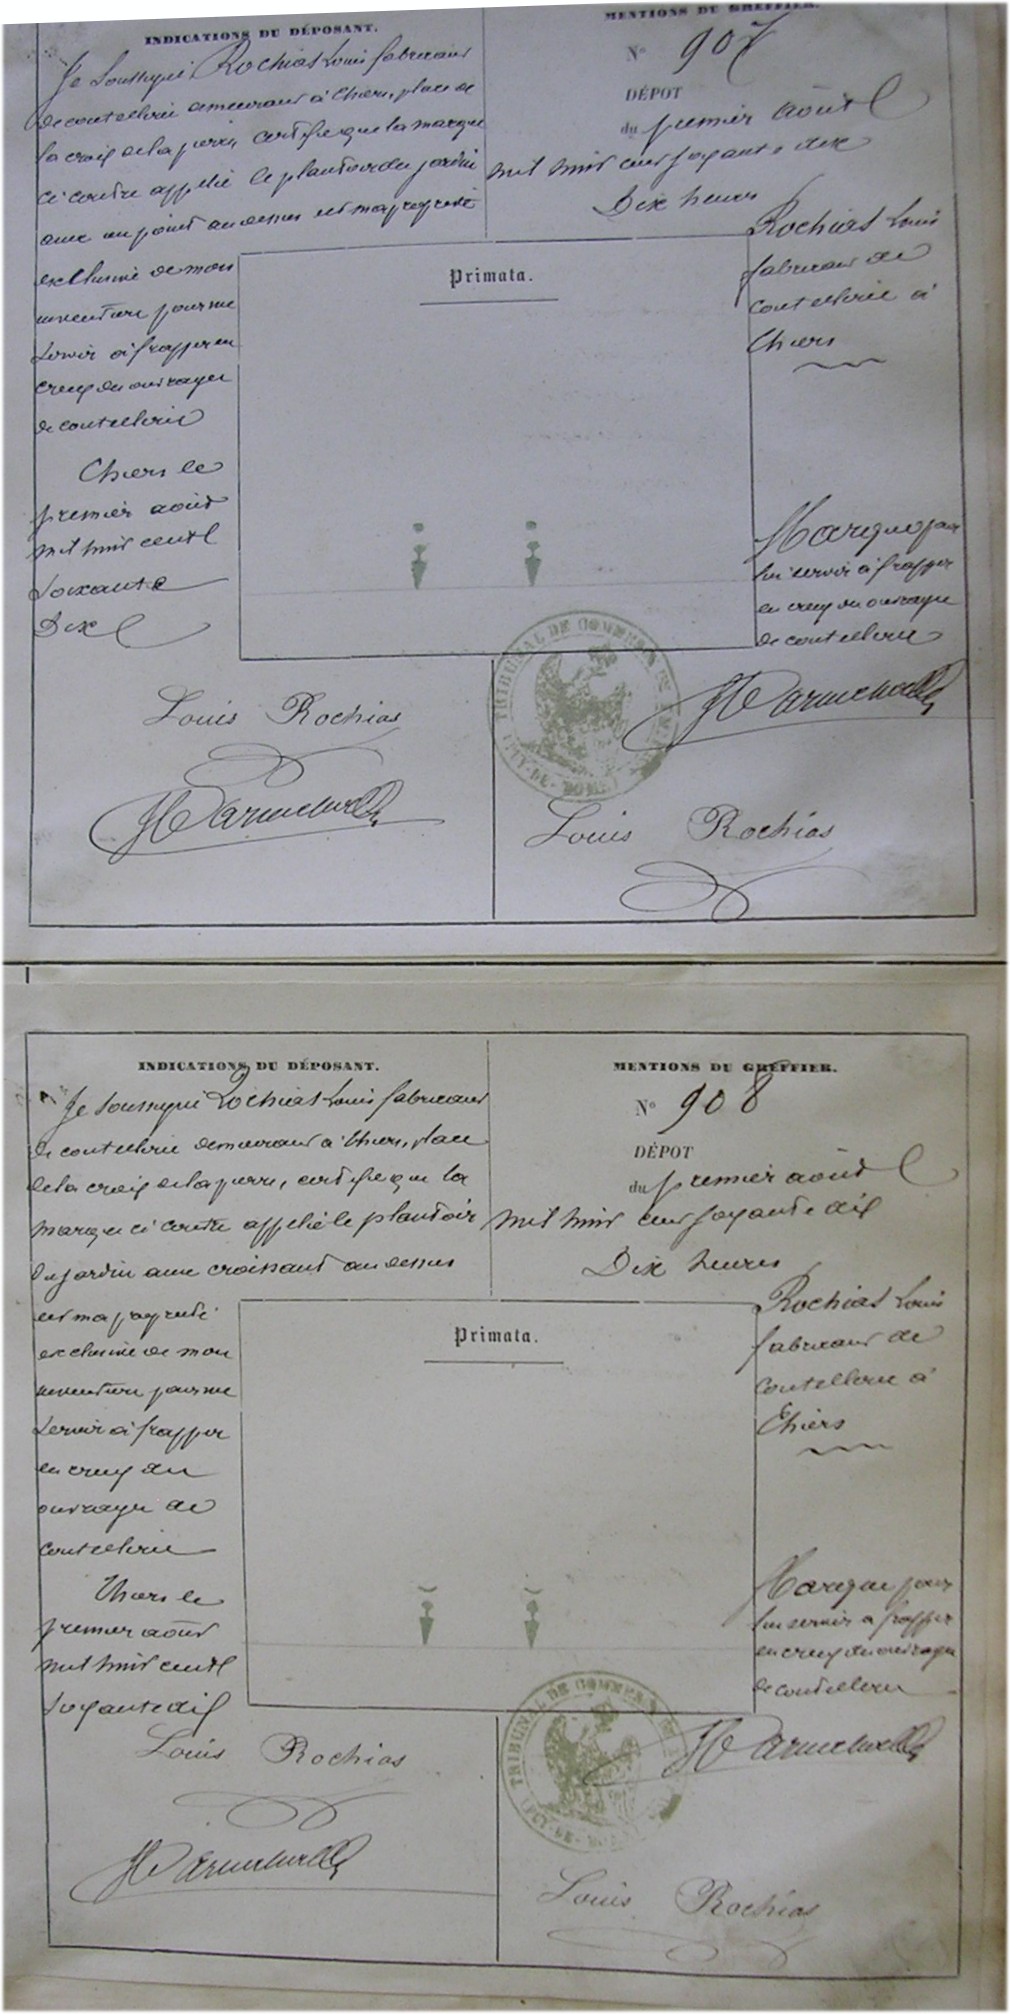 INDICATIONS DU DÉPOSANT.
Je soussigné Rochias Louis fabricant
de coutellerie demeurant à Thiers, place de
la croix de la pierre, certifie que la marque
ci contre appelée le plantoir du jardin
avec un point au dessus est ma propriété
exclusive de mon
invention pour me
servir à frapper en
creux des ouvrages
de coutellerie
Thiers le
premier août
mil huit cent
soixante
Dix
Louis Rochias
MENTIONS DU GREFFIER.
N° 907
DÉPOT
du premier août
mil huit cent soixante dix
Dix heures
Rochias Louis
fabricant de
coutellerie à
Thiers
Primata.
Marque pour
lui servir à frapper
en creux des ouvrages
de coutellerie
TRIBUNAL DE COMMERCE
PUY-DE-DOME
Louis Rochias
INDICATIONS DU DÉPOSANT.
Je soussigné Rochias Louis fabricant
de coutellerie demeurant à Thiers, place
de la croix de la pierre, certifie que la
marque ci contre appelée le plantoir
du jardin avec croissant au dessus
est ma propriété
exclusive de mon
invention pour me
servir à frapper
en creux des
ouvrages de
coutellerie
Thiers le
premier août
mil huit cent
soixante dix
Louis Rochias
MENTIONS DU GREFFIER.
N° 908
DÉPOT
du premier août
mil huit cent soixante dix
Dix heures
Rochias Louis
fabricant de
coutellerie à
Thiers
Primata.
Marque pour
lui servir à frapper
en creux des ouvrages
de coutellerie
TRIBUNAL DE COMMERCE
Louis Rochias